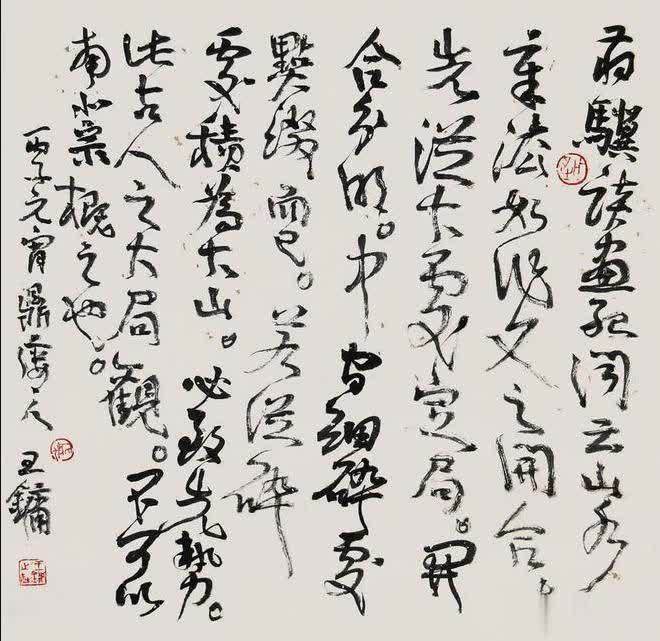 蒋驥读畫纪闻云山水
章法如作文之開合。
先從大處定局。開
合分明。中间細碎處
點綴而已。若從碎
處積為大山。必致失勢。
此古人之大局觀。不可以
南北宗概之也。
丙子元宵鼎廔主人 王鏞